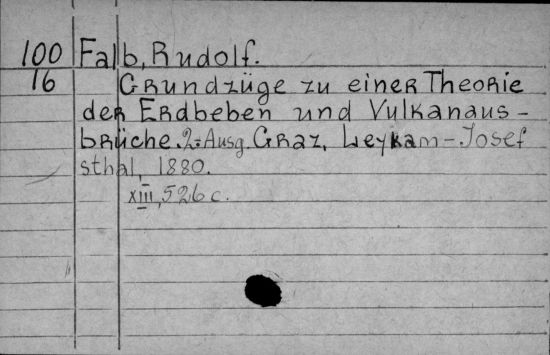 100 Falb, Rudolf.
16 Grundzüge zu einer Theorie
der Erdbeben und Vulkanaus-
brüche. 2te Ausg. Graz, Leykam-Josef
sthal, 1880.
XIII, 526 c.